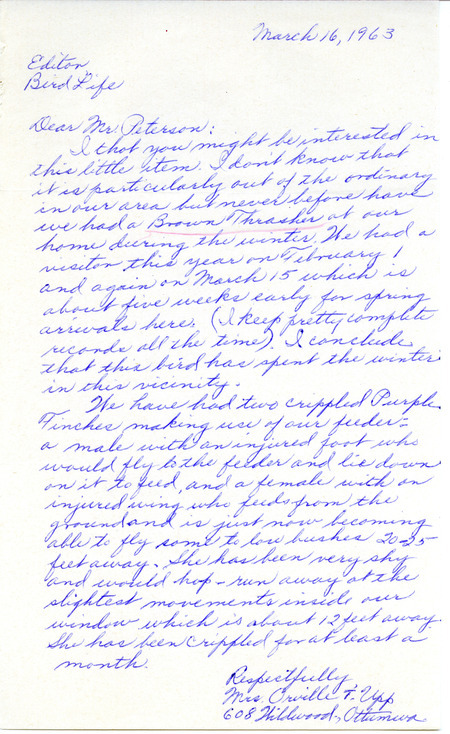 March 16, 1963
Editor
Bird Life
Dear Mr. Peterson:
I thot you might be interested in
this little item. I don't know that
it is particularly out of the ordinary
in our area but never before have
we had a Brown Thrasher at our
home during the winter. We had a
visitor this year on February 1
and again on March 15 which is
about five weeks early for spring
arrivals here. (I keep pretty complete
records all the time). I conclude
that this bird has spent the winter
in this vicinity.
We have had two crippled Purple
Finches making use of our feeder -
a male with an injured foot who
would fly to the feeder and lie down
on it to feed, and a female with an
injured wing who feeds from the
ground and is just now becoming
able to fly some to low bushes 20-25
feet away. She has been very shy
and would hop-run away at the
slightest movements inside our
window which is about 12 feet away.
She has been crippled for at least a
month.
Respectfully
Mrs. Orville F. Upp
608 Wildwood, Ottumwa